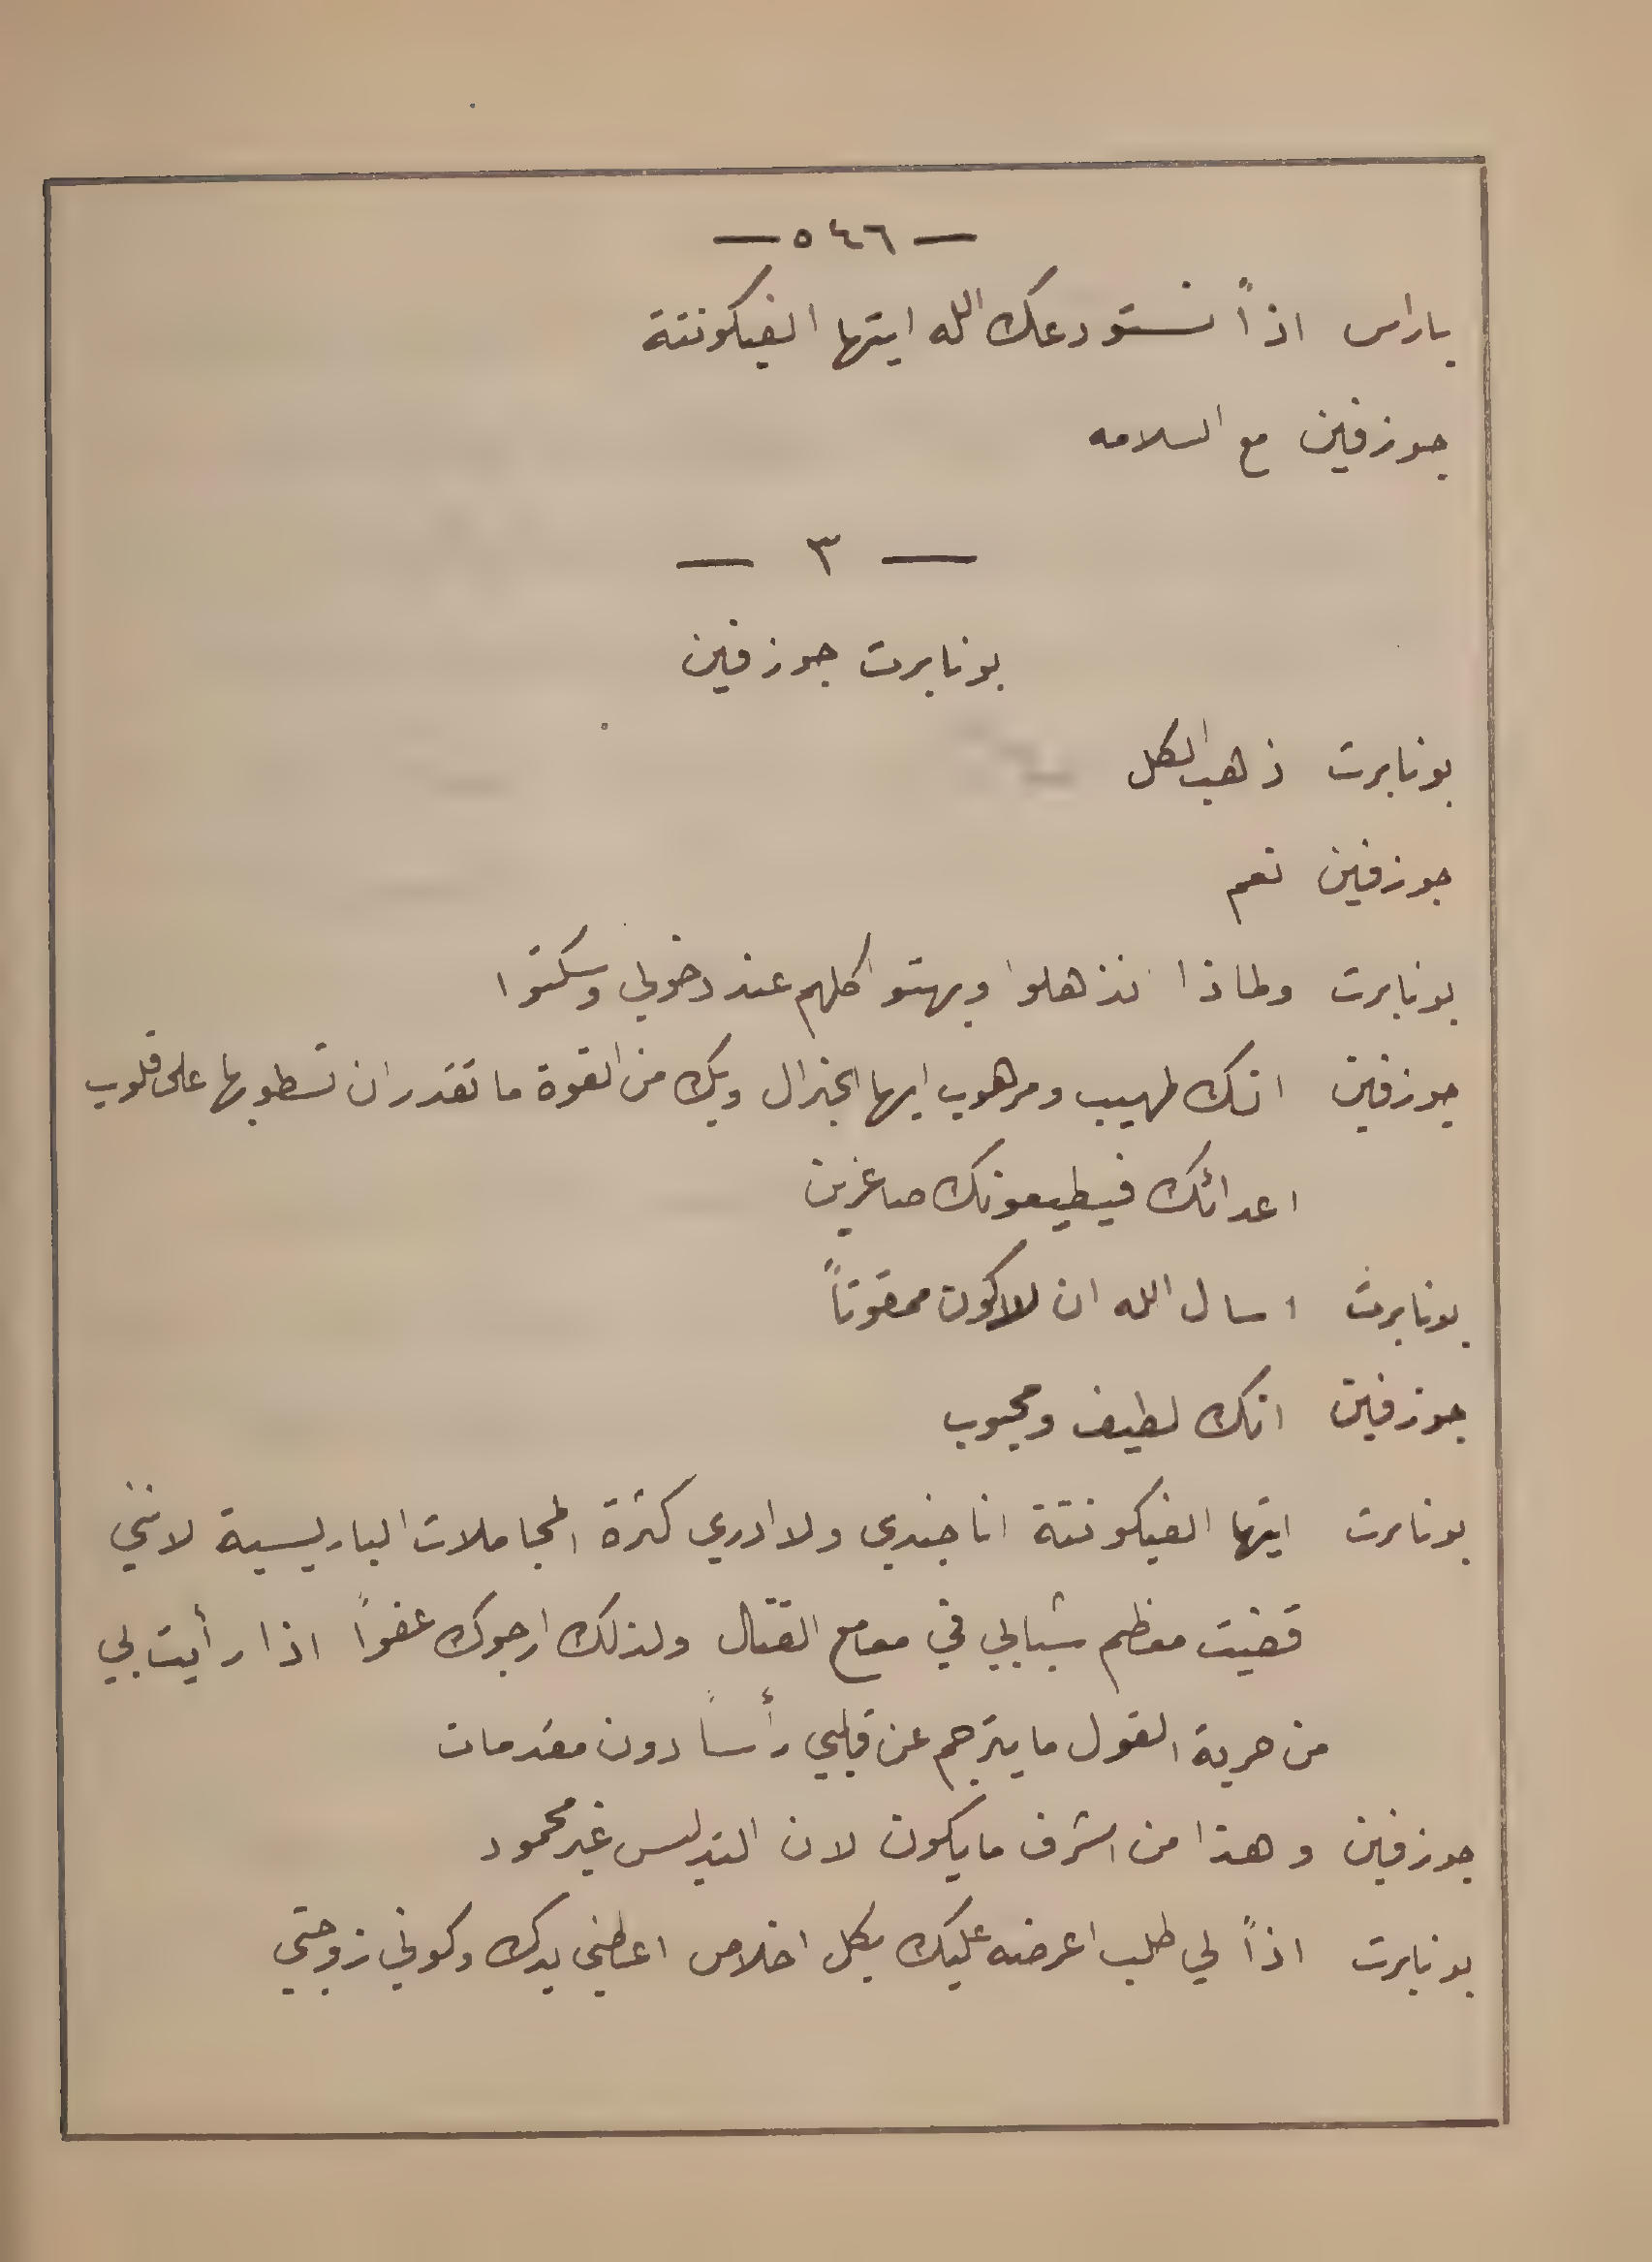 — ٥٤٦ —
باراس اذاً نستودعك الله ايتها الفيكونتة
جوزفين مع السلامه
— ٣ —
بونابرت جوزفين
بونابرت ذهب الكل
جوزفين نعم
بونابرت ولماذا نذهلوا وبهتوا كلهم عند دخولي وسكتوا
جوزفين انك لمهيب ومرهوب ايها الجنرال وبك من القوة ما تقدر ان تسطو بها على قلوب
اعدائك فيطيعونك صاغرين
بونابرت اسال الله ان لا اكون ممقوتاً
جوزفين انك لطيف ومحبوب
بونابرت ايتها الفيكونتة انا جندي ولا ادري كثرة المجاملات الباريسية لانني
قضيت معظم شبابي في معامع القتال ولذلك ارجوك عفواً اذا رأيت بي
من حرية القول ما يترجم عن قلبي رأساً دون مقدمات
جوزفين وهذا من اشرف ما يكون لان التدليس غير محمود
بونابرت اذاً لي طلب اعرضه عليك بكل اخلاص اعطني يدك وكوني زوجتي